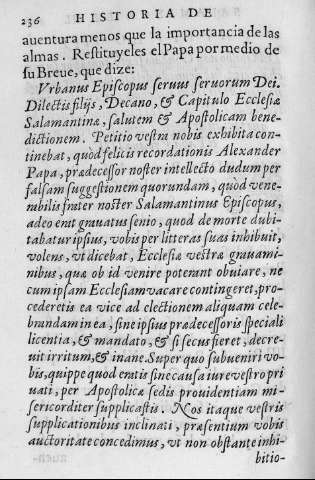 236 HISTORIA DE
auentura menos que la importancia de las
almas. Restituyeles el Papa por medio de
su Breue, que dize:
Vrbanus Episcopus seruus seruorum Dei.
Dilectis filijs, Decano, & Capitulo Ecclesiæ
Salamantinæ, salutem & Apostolicam bene-
dictionem. Petitio vestra nobis exhibita con-
tinebat, quòd felicis recordationis Alexander
Papa, prædecessor noster intellecto dudum per
falsam suggestionem quorundam, quòd vene-
nibilis frater noster Salamantinus Episcopus,
adeo erat grauatus senio, quod de morte dubi-
tabatur ipsius, vobis per litteras suas inhibuit,
volens, vt dicebat, Ecclesiæ vestræ grauami-
nibus, quæ ob id venire poterant obuiare, ne
cum ipsam Ecclesiam vacare contingeret, pro-
cederetis ea vice ad electionem aliquam cele-
brandam in ea, sine ipsius prædecessoris speciali
licentia, & mandato, & si secus fieret, decre-
uit irritum, & inane. Super quo subueniri vo-
bis, quippe quod eratis sine causa iure vestro pri
uati, per Apostolicæ sedis prouidentiam mi-
sericorditer supplicastis. Nos itaque vestris
supplicationibus inclinati, præsentium vobis
auctoritate concedimus, vt non obstante inhi-
bitio-